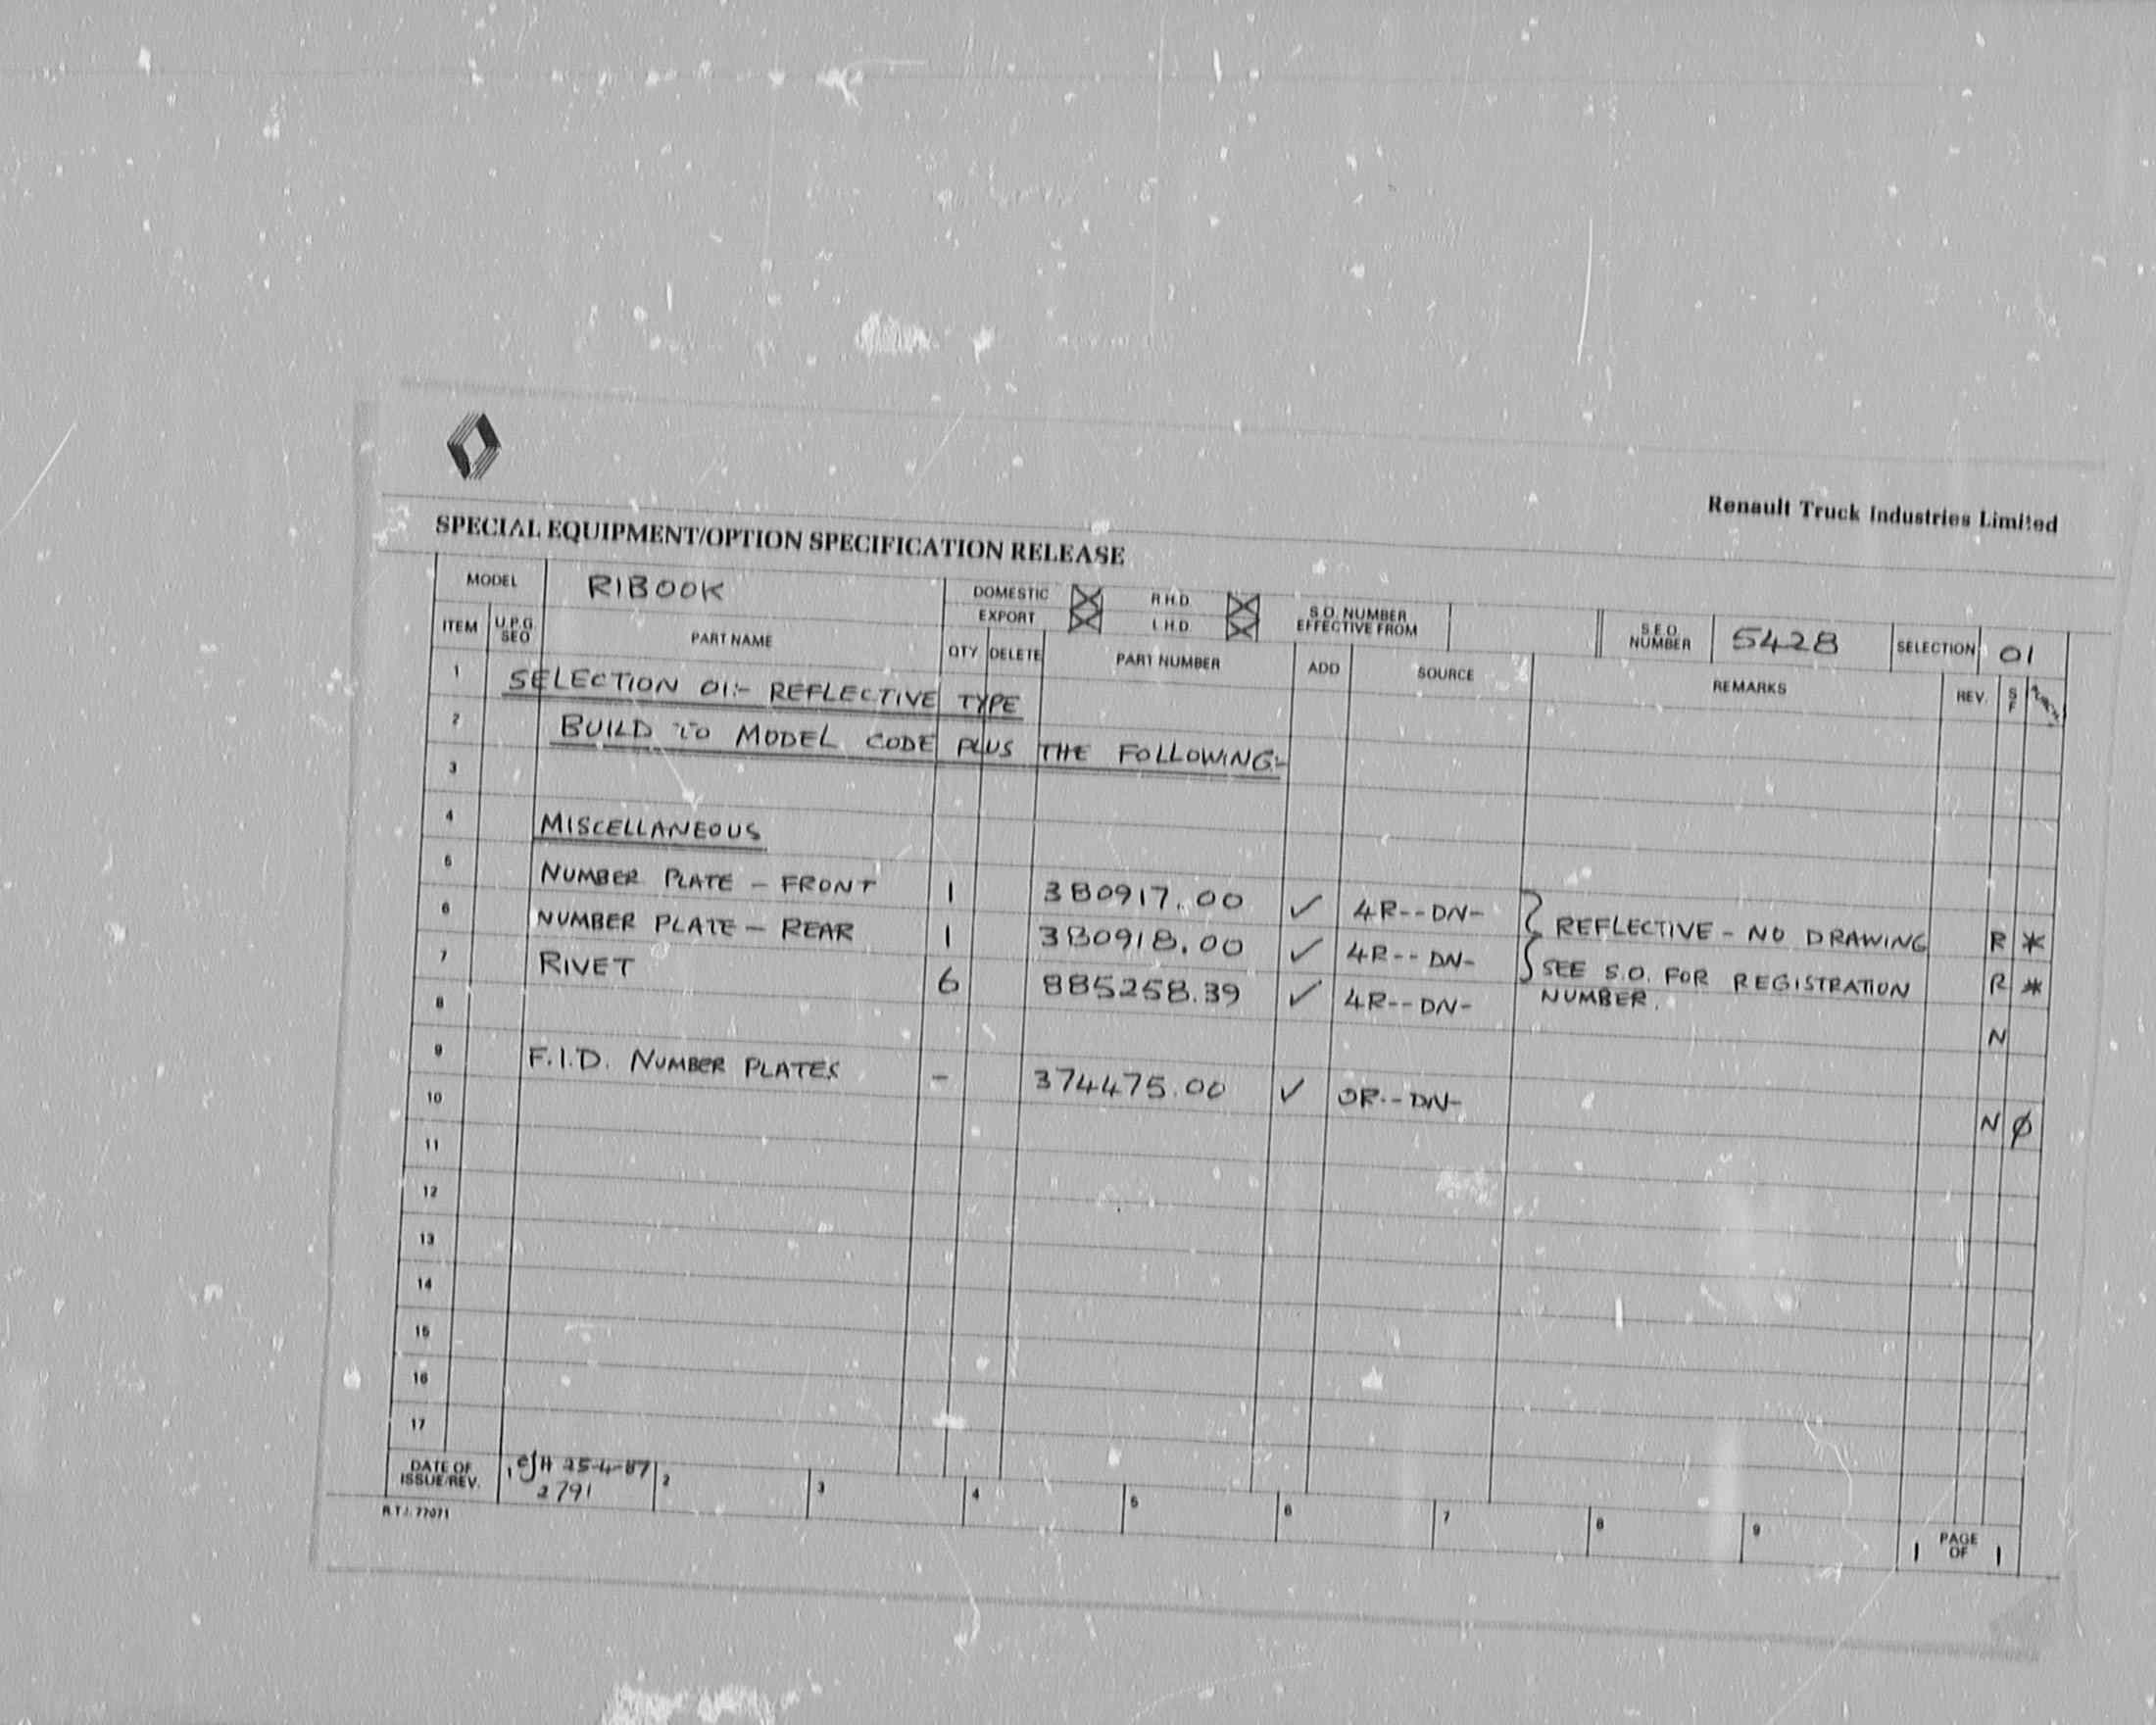 Renault Truck Industries Limited
SPECIAL EQUIPMENT/OPTION SPECIFICATION RELEASE
MODEL RIBOOK DOMESTIC R.H.D. S.O. NUMBER EFFECTIVE FROM S.E.O. NUMBER 5428 SELECTION 01
EXPORT L.H.D.
ITEM U.P.G. SEO PART NAME QTY DELETE PART NUMBER ADD SOURCE REMARKS REV. S F
1 SELECTION 01:- REFLECTIVE TYPE
2 BUILD TO MODEL CODE PLUS THE FOLLOWING:-
3
4 MISCELLANEOUS
5 NUMBER PLATE - FRONT 1 380917.00 ✓ 4R--DN- REFLECTIVE - NO DRAWING R *
6 NUMBER PLATE - REAR 1 380918.00 ✓ 4R--DN- SEE S.O. FOR REGISTRATION R *
7 RIVET 6 885258.39 ✓ 4R--DN- NUMBER. N
8
9 F.I.D. NUMBER PLATES - 374475.00 ✓ OR--DN- N Ø
10
11
12
13
14
15
16
17
DATE OF ISSUE/REV. 1 25-4-87 2 3 4 5 6 7 8 9 1 PAGE OF 1
2791
R.T.I. 77071